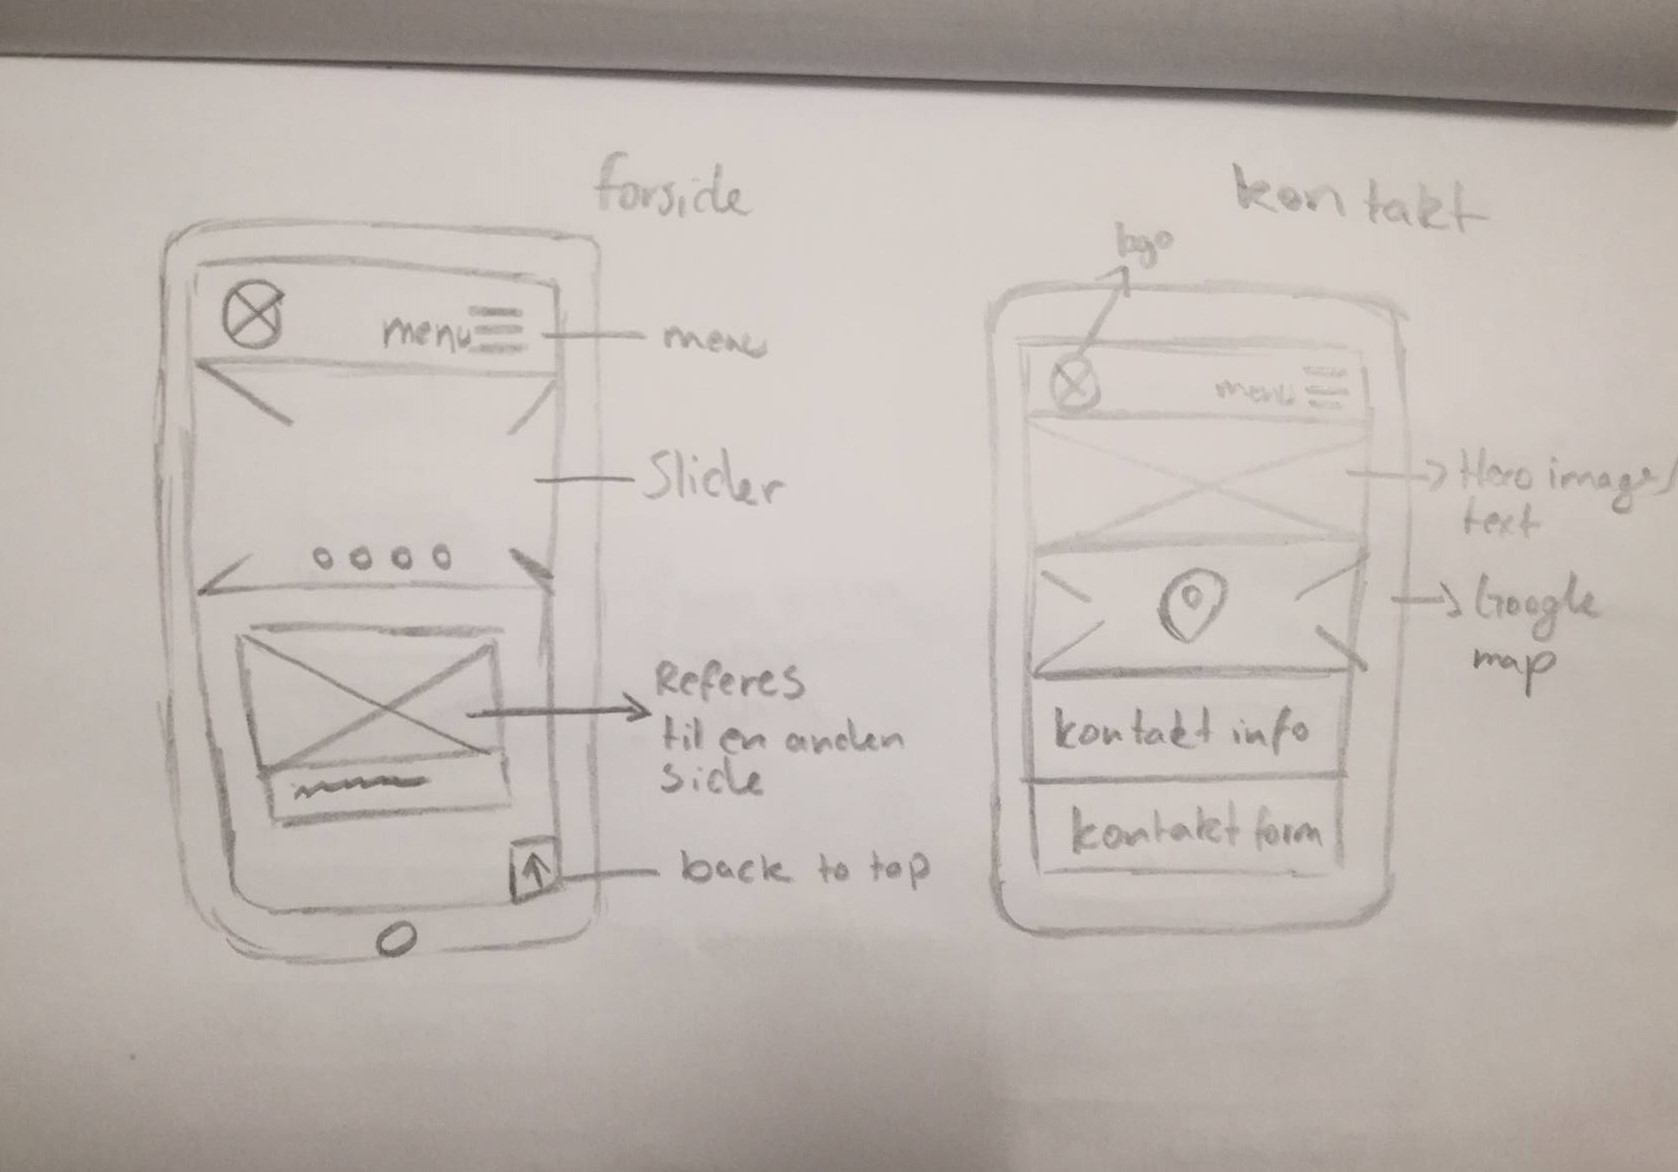 forside
menu
menu
Slider
Referes
til en anden
side
back to top
kontakt
logo
menu
Hero image/
text
Google
map
kontakt info
kontakt form